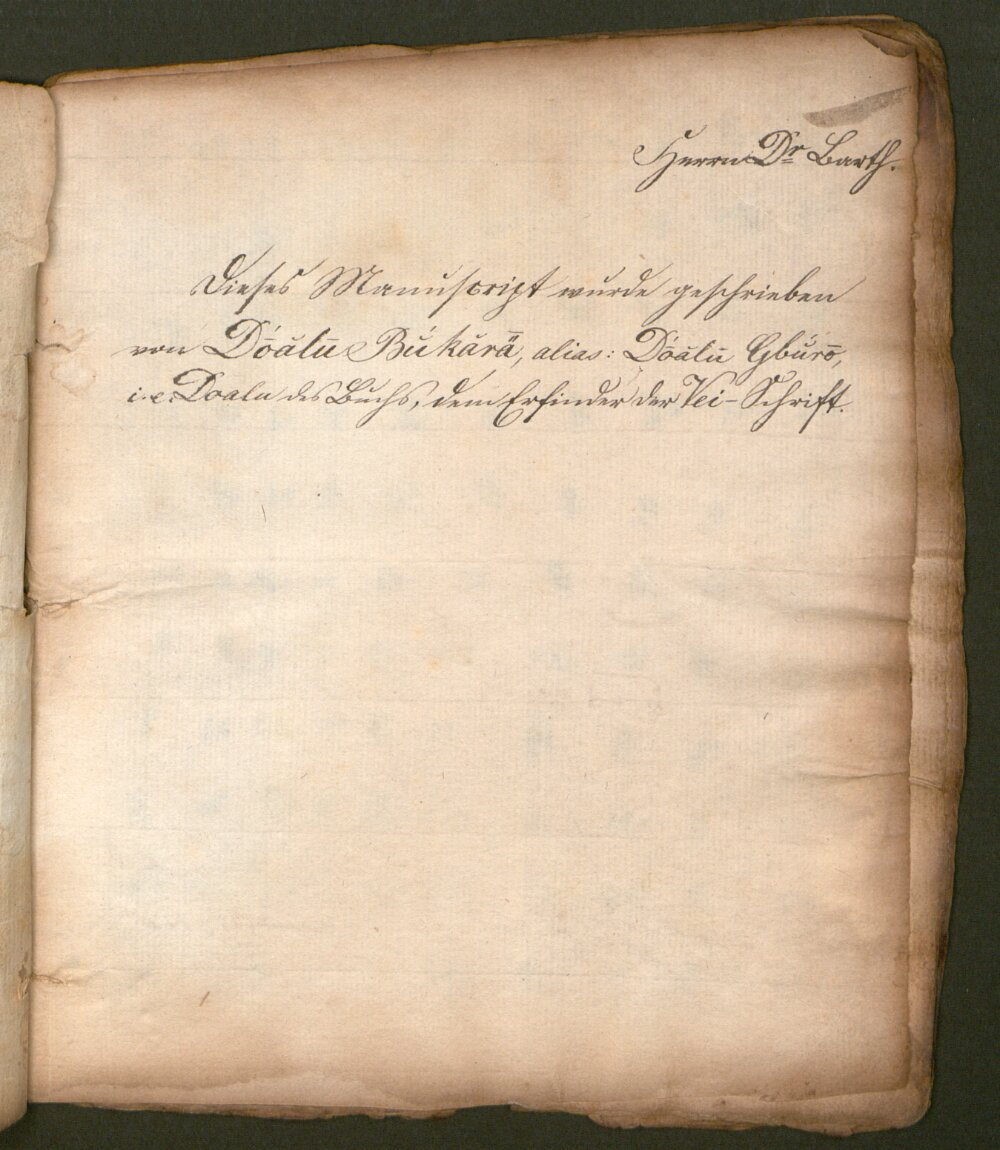 Herrn Dr Barth.
Dieses Manuscript wurde geschrieben
von Dōălū Bŭkărā, alias: Dōălū Gbŭrō,
i. e. Doalu des Buchs, dem Erfinder der Vei-Schrift.